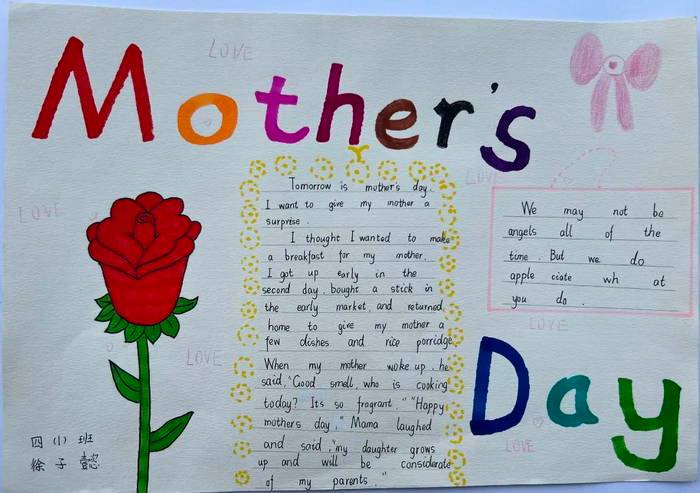 LOVE
Mother's
LOVE
LOVE
Tomorrow is mother's day.
I want to give my mother a
surprise.
I thought I wanted to make
a breakfast for my mother.
I got up early in the
second day, bought a stick in
the early market, and returned
home to give my mother a
few dishes and rice porridge.
When my mother woke up, he
said, "Good smell, who is cooking
today? Its so fragrant." "Happy
mothers day," Mama laughed
and said, "my daughter grows
up and will be considerate
of my parents."
We may not be
angels all of the
time. But we do
apple ciate wh at
you do.
LOVE
LOVE
Day
LOVE
四(1)班
徐子懿